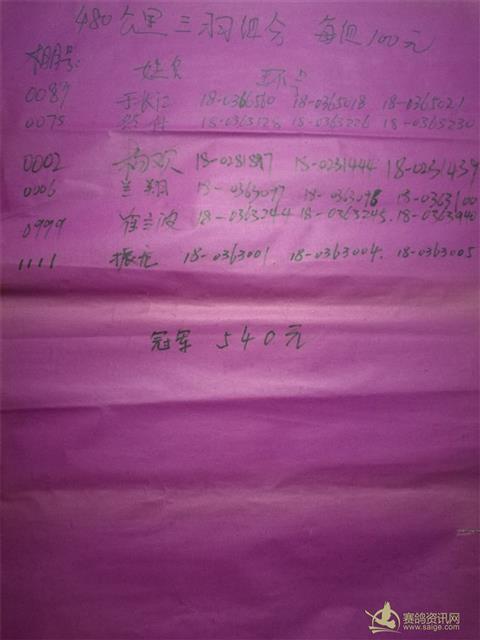 480公里三羽组合 每组100元
棚号: 姓名 环号
0089 于长江 18-0366560 18-0365018 18-0365021
0075 18-0363128 18-0363226 18-0363230
0002 18-0281897 18-0251444 18-0251439
0006 兰翔 18-0363097 18-0363098 18-0363100
0999 崔兰波 18-0363244 18-0363245 18-0363940
1111 振龙 18-0363001. 18-0363004. 18-0363005
冠军 540元
赛鸽资讯网
www.saige.com